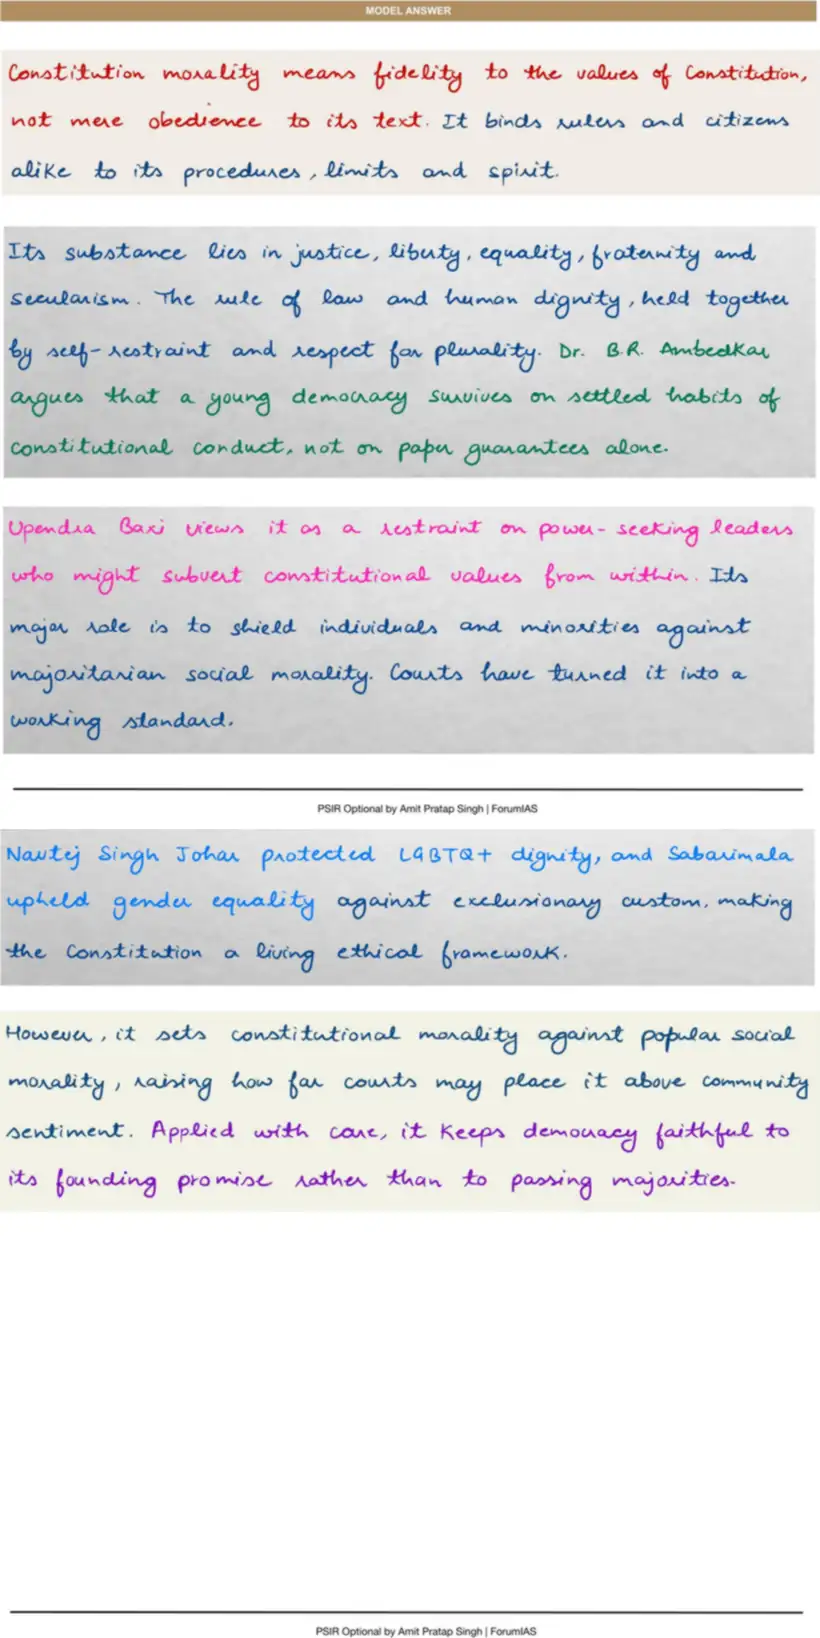 MODEL ANSWER
Constitution morality means fidelity to the values of Constitution,
not mere obedience to its text. It binds rulers and citizens
alike to its procedures, limits and spirit.
Its substance lies in justice, liberty, equality, fraternity and
secularism. The rule of law and human dignity, held together
by self-restraint and respect for plurality. Dr. B.R. Ambedkar
argues that a young democracy survives on settled habits of
constitutional conduct, not on paper guarantees alone.
Upendra Baxi views it as a restraint on power-seeking leaders
who might subvert constitutional values from within. Its
major role is to shield individuals and minorities against
majoritarian social morality. Courts have turned it into a
working standard.
PSIR Optional by Amit Pratap Singh | ForumIAS
Navtej Singh Johar protected LGBTQ+ dignity, and Sabarimala
upheld gender equality against exclusionary custom, making
the Constitution a living ethical framework.
However, it sets constitutional morality against popular social
morality, raising how far courts may place it above community
sentiment. Applied with care, it keeps democracy faithful to
its founding promise rather than to passing majorities.
PSIR Optional by Amit Pratap Singh | ForumIAS